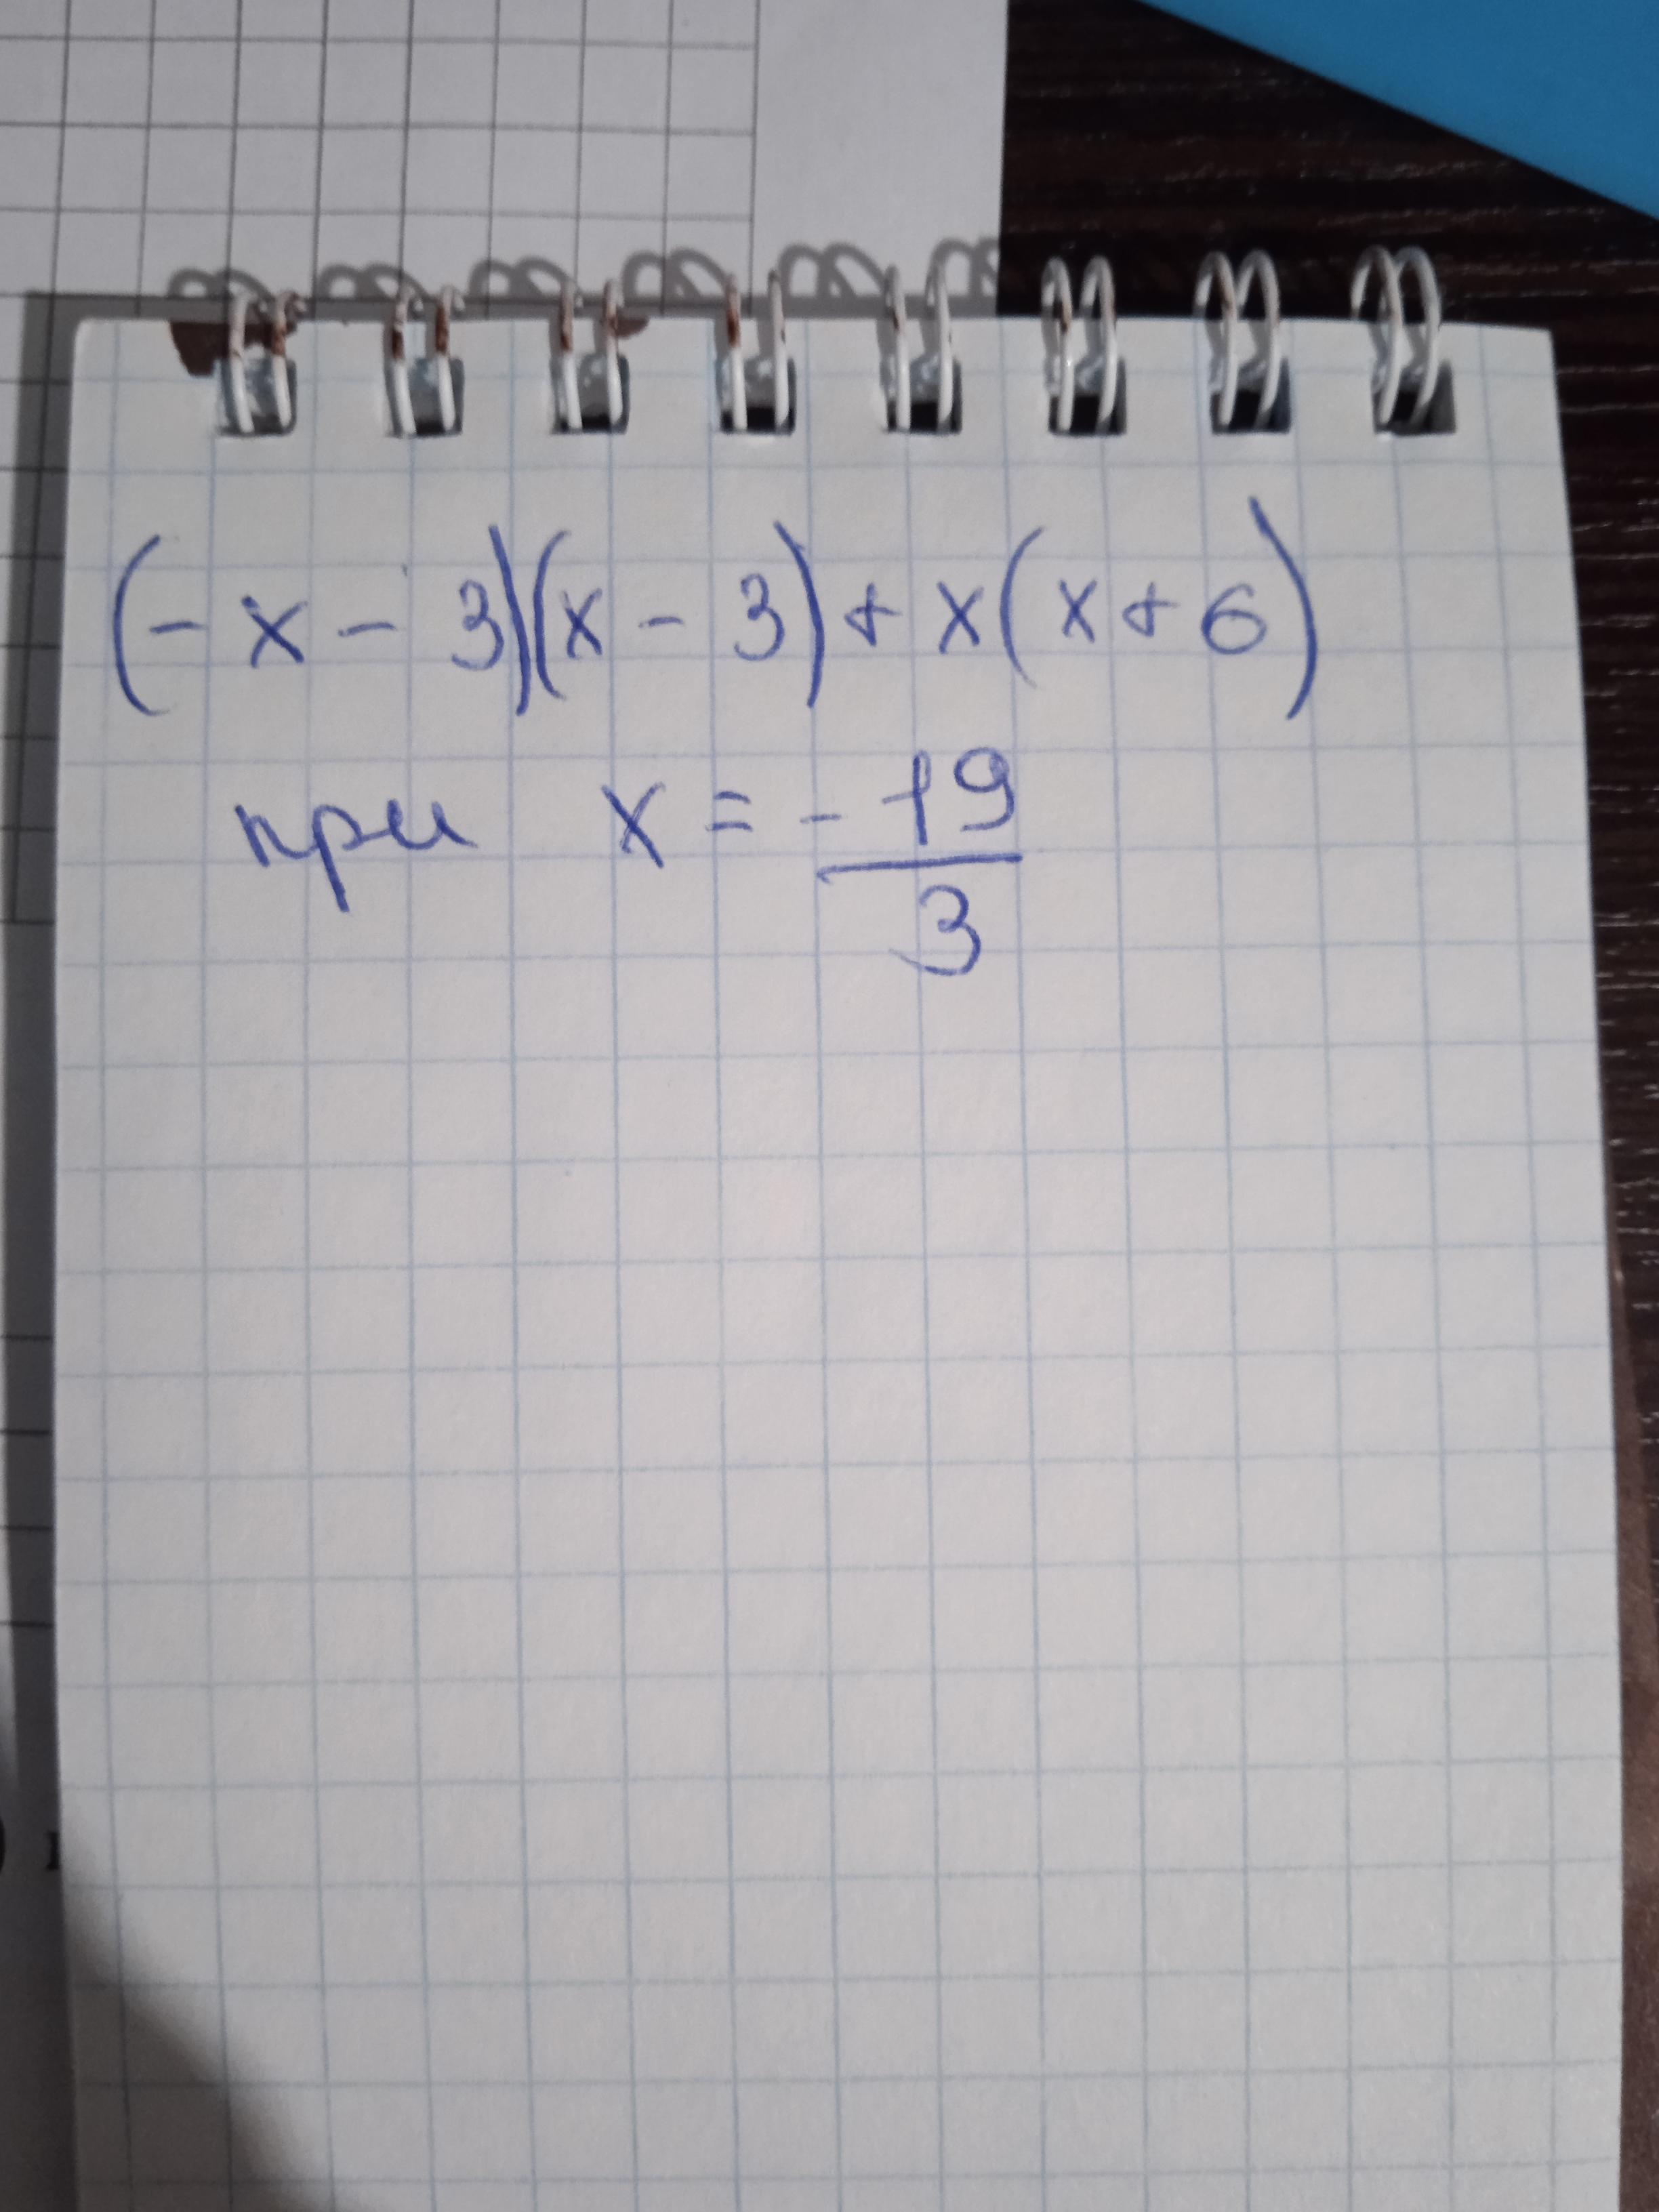 (- x - 3)(x - 3) + x(x + 6)
при x = -19
3